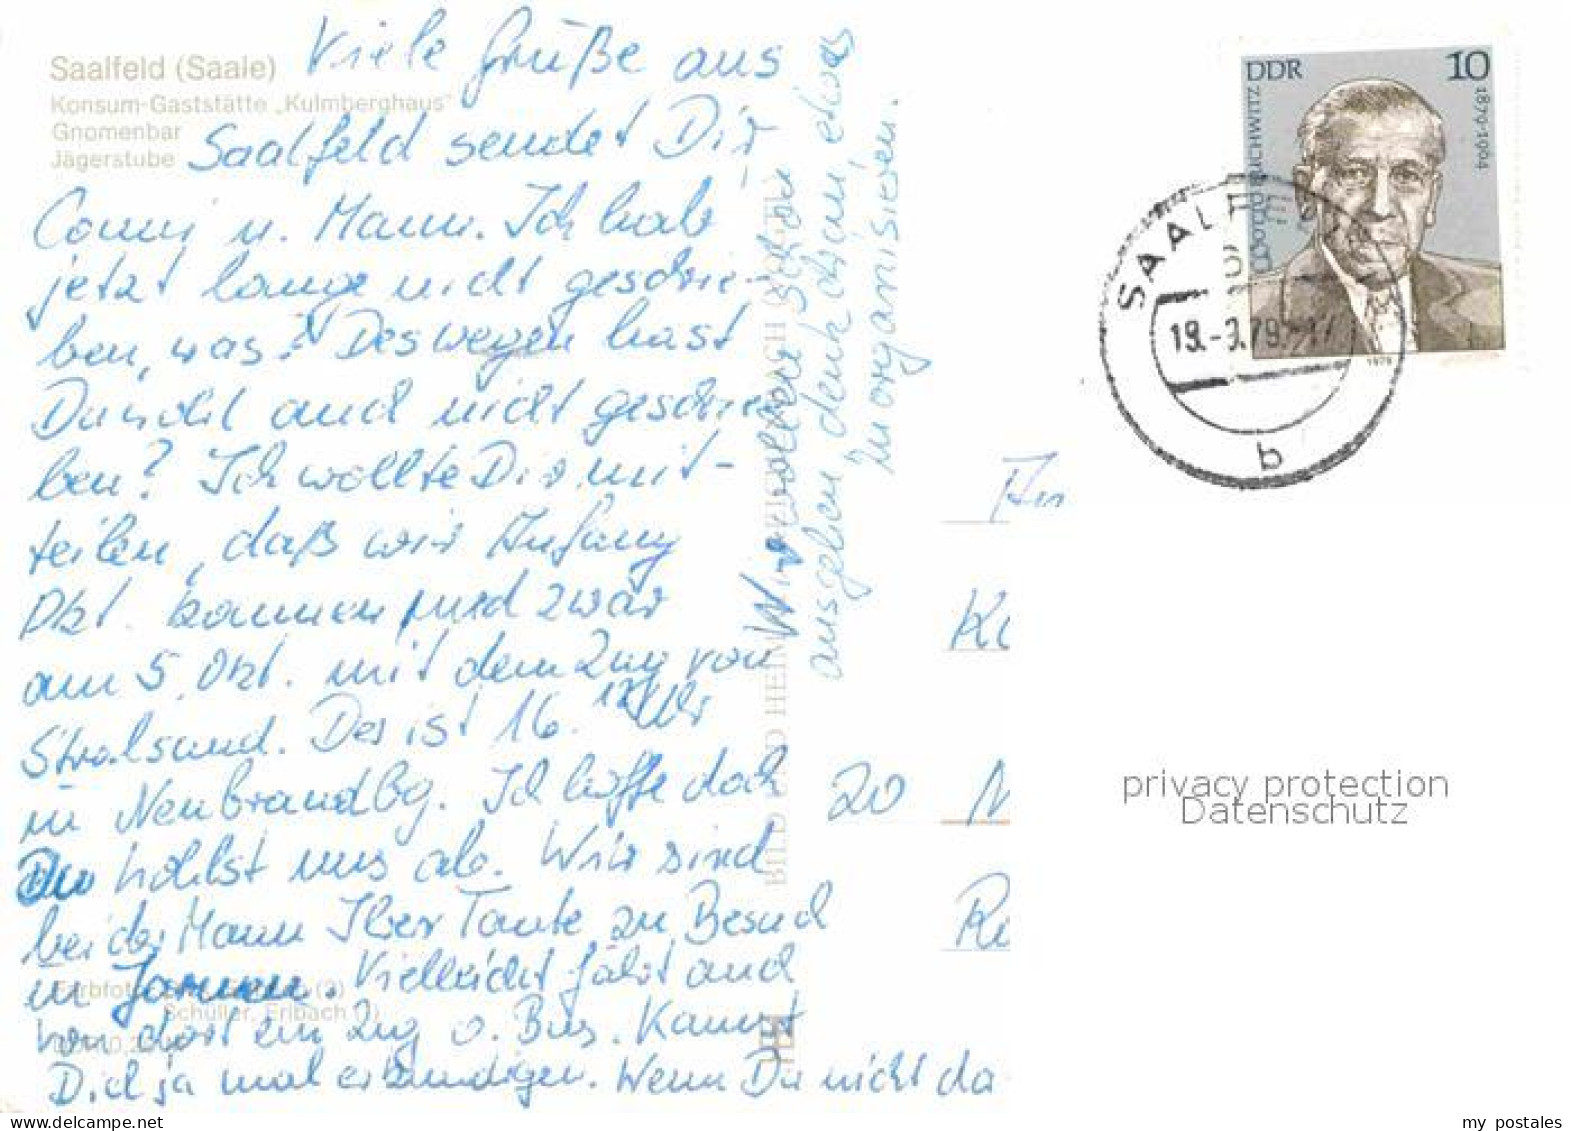 Saalfeld (Saale)
Konsum-Gaststätte „Kulmberghaus"
Gnomenbar
Jägerstube
Viele Grüße aus
Saalfeld sendet Dir
Conny u. Mann. Ich habe
jetzt lange nicht geschrie-
ben, was? Deswegen hast
Du wohl auch nicht geschrie-
ben? Ich wollte Dir mit-
teilen, daß wir Anfang
Okt. kommen und zwar
am 5. Okt. mit dem Zug von
Stralsund. Der ist 16.12 Uhr
in Neubrandbg. Ich hoffe doch
Du hohlst uns ab. Wir sind
bei der Mann Ihrer Tante zu Besuch
in Jarmen. Vielleicht fährt auch
von dort ein Zug o. Bus. Kannst
Dich ja mal erkundigen. Wenn Du nicht da
Wir wollen schon
ausgehen denk dran, etwas
zu organisieren.
Farbfoto
(3)
Schüller, Erlbach (1)
BILD UND HEIMAT REICHENBACH
DDR 10
OTTO BUCHWITZ
1879-1964
1979
SAALFELD
19.-3.79
b
An
20
privacy protection
Datenschutz
my postales